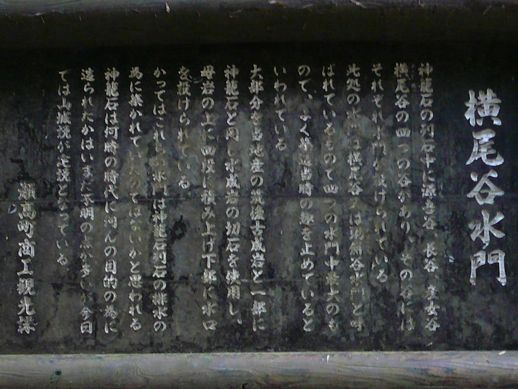 横尾谷水門
神籠石の列石中に源吉谷 長谷 産女谷
横尾谷の四つの谷があり その谷には
それぞれ水門が設けられている
此処の水門は横尾谷 又は 谷水門と呼
ばれているもので四つの水門中最大のも
ので、よく築造当時の姿を止めていると
いわれている
大部分を当地産の筑後古成岩と一部に
神籠石と同じ水成岩の切石を使用し、
母岩の上に四段に積み上げ下部に水口
を設けられている
かってはこれらの水門は神籠石列石の排水の
為に築かれてものではないかと思われる
神籠石は何時の時代に何んの目的の為に
造られたかはいまだ不明の点が多い、今日
では山城説が定説となっている
瀬高町商工観光課